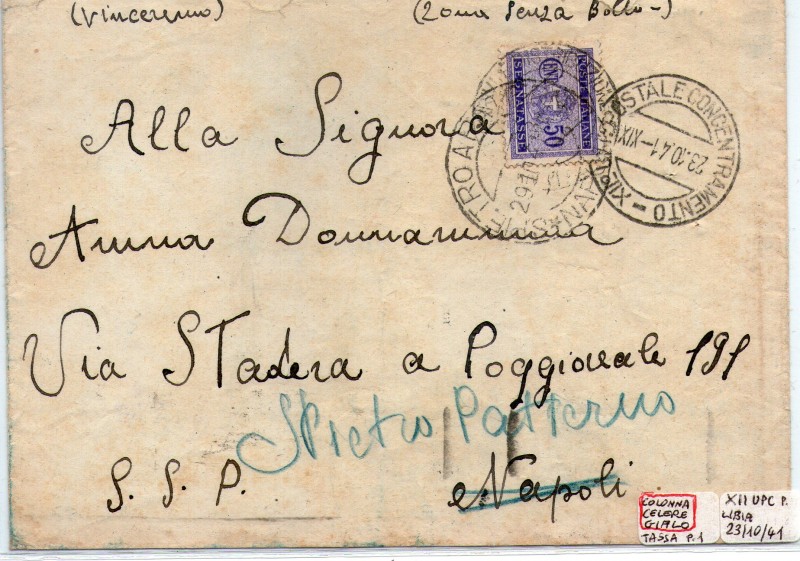 (Vinceremo) (Zona Senza Bollo-)
POSTE ITALIANE
SEGNATASSE
CENT. 50
POSTALE CONCENTRAMENTO - XII
23.10.41-XIX
Alla Signora
Anna Donnarumma
Via Stadera a Poggioreale 191
S Pietro Patierno
S. S. P. Napoli
COLONNA
CELERE
GIALO
TASSA P.1
XII UPC P.
LIBIA
23/10/41